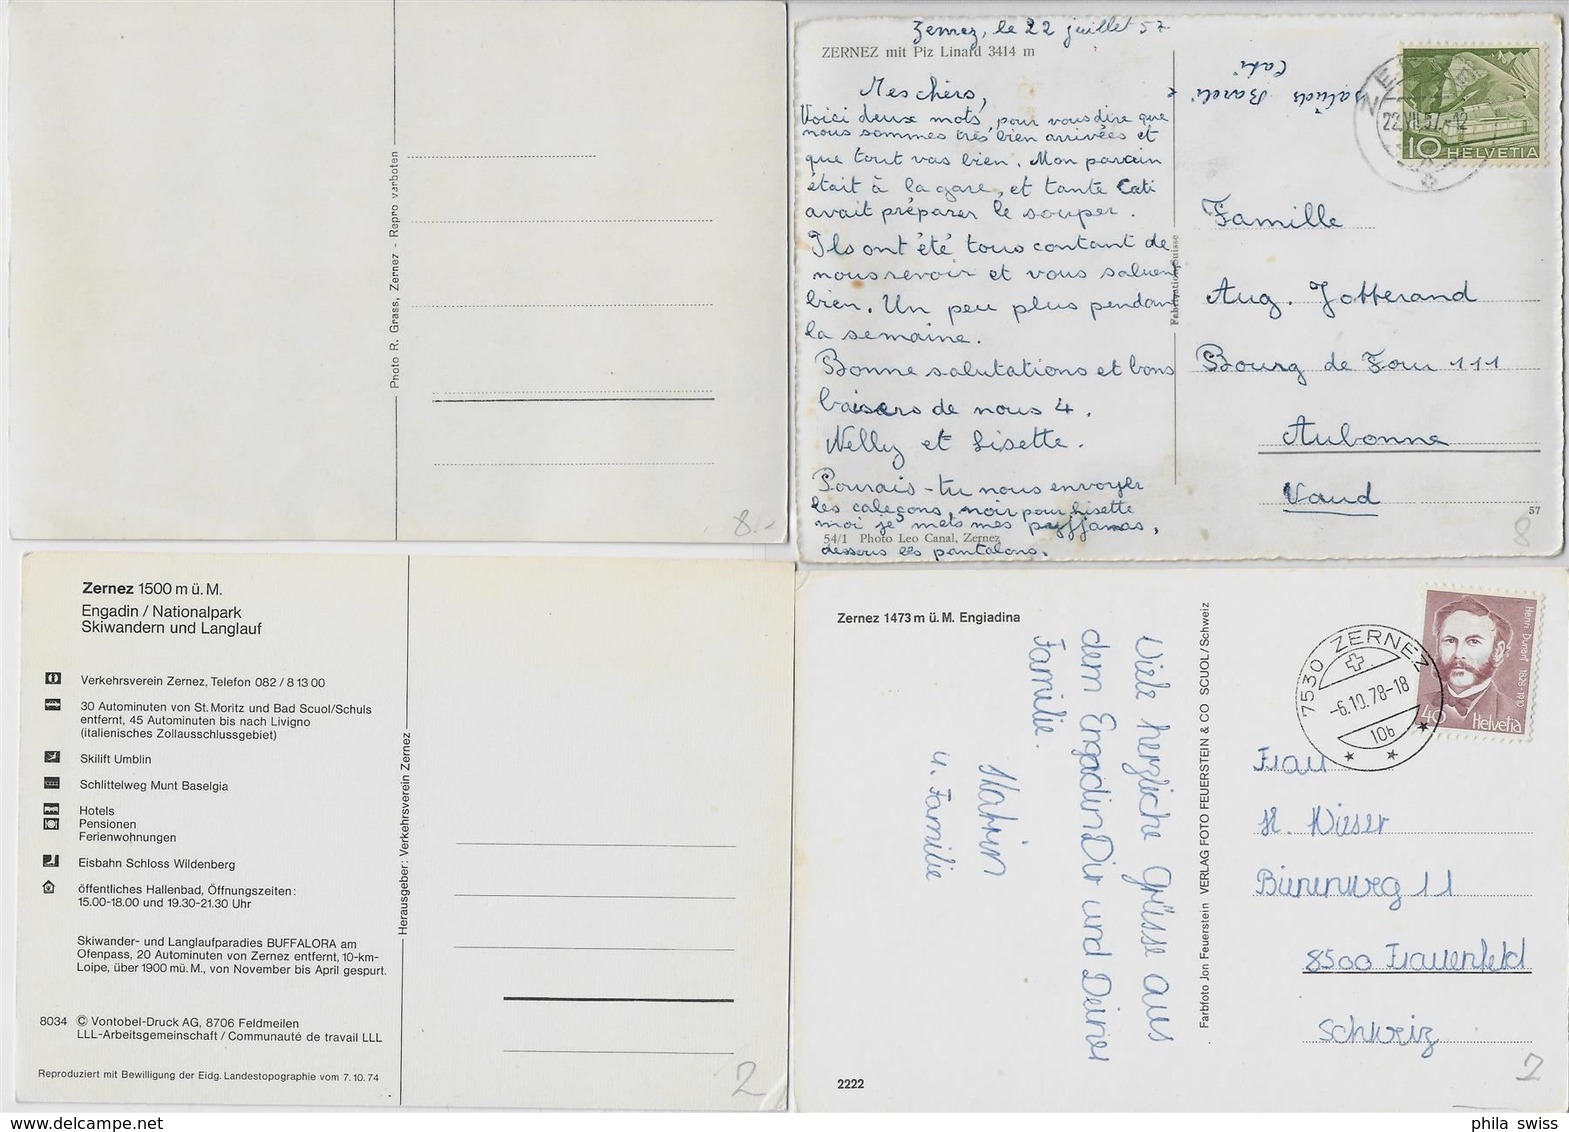 Photo R. Grass, Zernez - Repro verboten
8.-
Zernez, le 22 juillet 57
ZERNEZ mit Piz Linard 3414 m
Mes chèrs,
Voici deux mots, pour vous dire que
nous sommes très bien arrivées et
que tout vas bien. Mon parain
était à la gare, et tante Cati
avait préparer le souper.
Ils ont été tous contant de
nous revoir et vous saluent
bien. Un peu plus pendant
la semaine.
Bonne salutations et bons
baisers de nous 4.
Nelly et Lisette.
Pourais-tu nous envoyer
les caleçons, noir pour Lisette
moi je mets mes pyjjamas,
dessous les pantalons.
54/1 Photo Leo Canal, Zernez
Fabrication Suisse
Saluds Bareli e
Cati
22.VII.57.-12
10 HELVETIA
Famille
Aug. Jotterand
Bourg de Four 111
Aubonne
Vaud
57
8
Zernez 1500 m ü. M.
Engadin / Nationalpark
Skiwandern und Langlauf
Verkehrsverein Zernez, Telefon 082 / 8 13 00
30 Autominuten von St. Moritz und Bad Scuol/Schuls
entfernt, 45 Autominuten bis nach Livigno
(italienisches Zollausschlussgebiet)
Skilift Umblin
Schlittelweg Munt Baselgia
Hotels
Pensionen
Ferienwohnungen
Eisbahn Schloss Wildenberg
öffentliches Hallenbad, Öffnungszeiten:
15.00-18.00 und 19.30-21.30 Uhr
Skiwander- und Langlaufparadies BUFFALORA am
Ofenpass, 20 Autominuten von Zernez entfernt, 10-km-
Loipe, über 1900 m ü. M., von November bis April gespurt.
8034 © Vontobel-Druck AG, 8706 Feldmeilen
LLL-Arbeitsgemeinschaft / Communauté de travail LLL
Reproduziert mit Bewilligung der Eidg. Landestopographie vom 7. 10. 74
Herausgeber: Verkehrsverein Zernez
2
Zernez 1473 m ü. M. Engiadina
Viele herzliche Grüsse aus
dem Engadin Dir und Deiner
Familie.
Katrin
u. Familie
Farbfoto Jon Feuerstein VERLAG FOTO FEUERSTEIN & CO SCUOL/Schweiz
7530 ZERNEZ
-6.10.78-18
10b
Henri Dunant 1828-1910
40 Helvetia
Frau
H. Wieser
Bienenweg 11
8500 Frauenfeld
Schweiz
2222
2
phila swiss